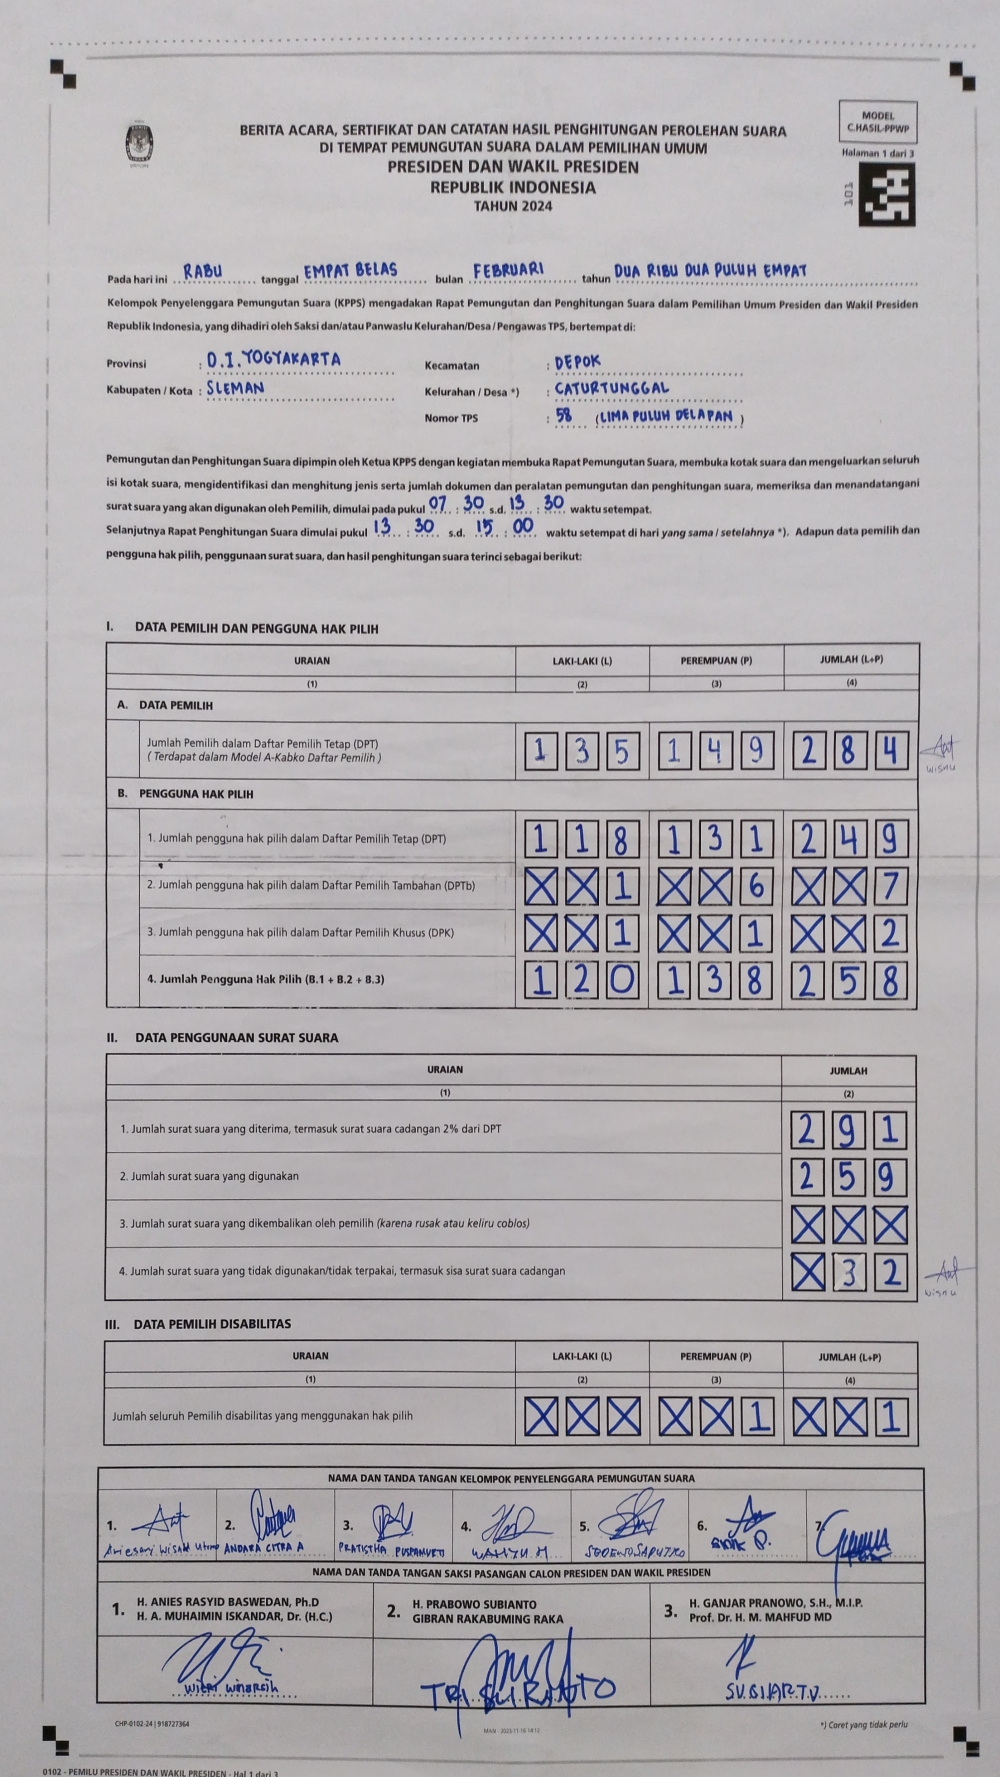 MODEL
C.HASIL-PPWP
Halaman 1 dari 3
101
BERITA ACARA, SERTIFIKAT DAN CATATAN HASIL PENGHITUNGAN PEROLEHAN SUARA
DI TEMPAT PEMUNGUTAN SUARA DALAM PEMILIHAN UMUM
PRESIDEN DAN WAKIL PRESIDEN
REPUBLIK INDONESIA
TAHUN 2024
Pada hari ini RABU tanggal EMPAT BELAS bulan FEBRUARI tahun DUA RIBU DUA PULUH EMPAT
Kelompok Penyelenggara Pemungutan Suara (KPPS) mengadakan Rapat Pemungutan dan Penghitungan Suara dalam Pemilihan Umum Presiden dan Wakil Presiden
Republik Indonesia, yang dihadiri oleh Saksi dan/atau Panwaslu Kelurahan/Desa / Pengawas TPS, bertempat di:
Provinsi : D.I. YOGYAKARTA Kecamatan : DEPOK
Kabupaten / Kota : SLEMAN Kelurahan / Desa *) : CATURTUNGGAL
Nomor TPS : 58 (LIMA PULUH DELAPAN)
Pemungutan dan Penghitungan Suara dipimpin oleh Ketua KPPS dengan kegiatan membuka Rapat Pemungutan Suara, membuka kotak suara dan mengeluarkan seluruh
isi kotak suara, mengidentifikasi dan menghitung jenis serta jumlah dokumen dan peralatan pemungutan dan penghitungan suara, memeriksa dan menandatangani
surat suara yang akan digunakan oleh Pemilih, dimulai pada pukul 07 : 30 s.d. 13 : 30 waktu setempat.
Selanjutnya Rapat Penghitungan Suara dimulai pukul 13 : 30 s.d. 15 : 00 waktu setempat di hari yang sama / setelahnya *). Adapun data pemilih dan
pengguna hak pilih, penggunaan surat suara, dan hasil penghitungan suara terinci sebagai berikut:
I. DATA PEMILIH DAN PENGGUNA HAK PILIH
URAIAN LAKI-LAKI (L) PEREMPUAN (P) JUMLAH (L+P)
(1) (2) (3) (4)
A. DATA PEMILIH
Jumlah Pemilih dalam Daftar Pemilih Tetap (DPT)
( Terdapat dalam Model A-Kabko Daftar Pemilih ) 1 3 5 1 4 9 2 8 4
WISNU
B. PENGGUNA HAK PILIH
1. Jumlah pengguna hak pilih dalam Daftar Pemilih Tetap (DPT) 1 1 8 1 3 1 2 4 9
2. Jumlah pengguna hak pilih dalam Daftar Pemilih Tambahan (DPTb) X X 1 X X 6 X X 7
3. Jumlah pengguna hak pilih dalam Daftar Pemilih Khusus (DPK) X X 1 X X 1 X X 2
4. Jumlah Pengguna Hak Pilih (B.1 + B.2 + B.3) 1 2 0 1 3 8 2 5 8
II. DATA PENGGUNAAN SURAT SUARA
URAIAN JUMLAH
(1) (2)
1. Jumlah surat suara yang diterima, termasuk surat suara cadangan 2% dari DPT 2 9 1
2. Jumlah surat suara yang digunakan 2 5 9
3. Jumlah surat suara yang dikembalikan oleh pemilih (karena rusak atau keliru coblos) X X X
4. Jumlah surat suara yang tidak digunakan/tidak terpakai, termasuk sisa surat suara cadangan X 3 2
WISNU
III. DATA PEMILIH DISABILITAS
URAIAN LAKI-LAKI (L) PEREMPUAN (P) JUMLAH (L+P)
(1) (2) (3) (4)
Jumlah seluruh Pemilih disabilitas yang menggunakan hak pilih X X X X X 1 X X 1
NAMA DAN TANDA TANGAN KELOMPOK PENYELENGGARA PEMUNGUTAN SUARA
1. 2. 3. 4. 5. 6. 7.
ANDARA CITRA A PRATISTHA WAHYU M
NAMA DAN TANDA TANGAN SAKSI PASANGAN CALON PRESIDEN DAN WAKIL PRESIDEN
1. H. ANIES RASYID BASWEDAN, Ph.D
H. A. MUHAIMIN ISKANDAR, Dr. (H.C.)
2. H. PRABOWO SUBIANTO
GIBRAN RAKABUMING RAKA
3. H. GANJAR PRANOWO, S.H., M.I.P.
Prof. Dr. H. M. MAHFUD MD
WITRI WINARSIH
TRI SURANTO
CHP-0102-24 | 918727364
MAN : 2023-11-16 14:12
*) Coret yang tidak perlu
0102 - PEMILU PRESIDEN DAN WAKIL PRESIDEN - Hal 1 dari 3